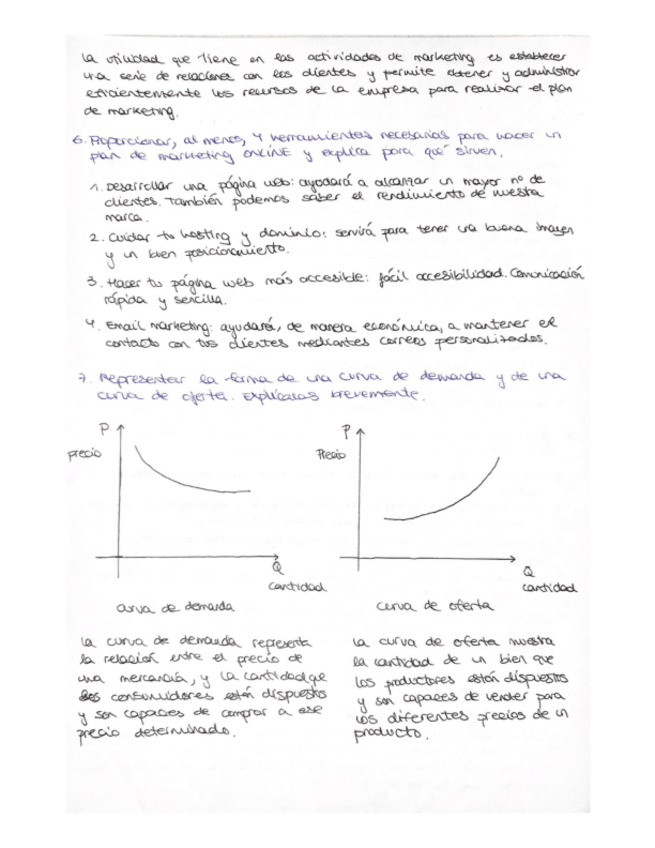 La utilidad que tiene en las actividades de marketing es establecer
una serie de relaciones con los clientes y permite obtener y administrar
eficientemente los recursos de la empresa para realizar el plan
de marketing.
6. Proporcionar, al menos, 4 herramientas necesarias para hacer un
plan de marketing ONLINE y explica para qué sirven.
1. Desarrollar una página web: ayudará a alcanzar un mayor nº de
clientes. También podemos saber el rendimiento de nuestra
marca.
2. Cuidar tu hosting y dominio: servirá para tener una buena imagen
y un bien posicionamiento.
3. Hacer tu página web más accesible: fácil accesibilidad. Comunicación
rápida y sencilla.
4. Email marketing: ayudará, de manera económica, a mantener el
contacto con tus clientes mediantes correos personalizados.
7. Representar la forma de una curva de demanda y de una
curva de oferta. Explícalas brevemente.
P
precio
Q
cantidad
curva de demanda
P
Precio
Q
cantidad
curva de oferta
La curva de demanda representa
la relación entre el precio de
una mercancía, y la cantidad qe
los consumidores están dispuestos
y son capaces de comprar a ese
precio determinado.
La curva de oferta muestra
la cantidad de un bien que
los productores están dispuestos
y son capaces de vender para
los diferentes precios de un
producto.